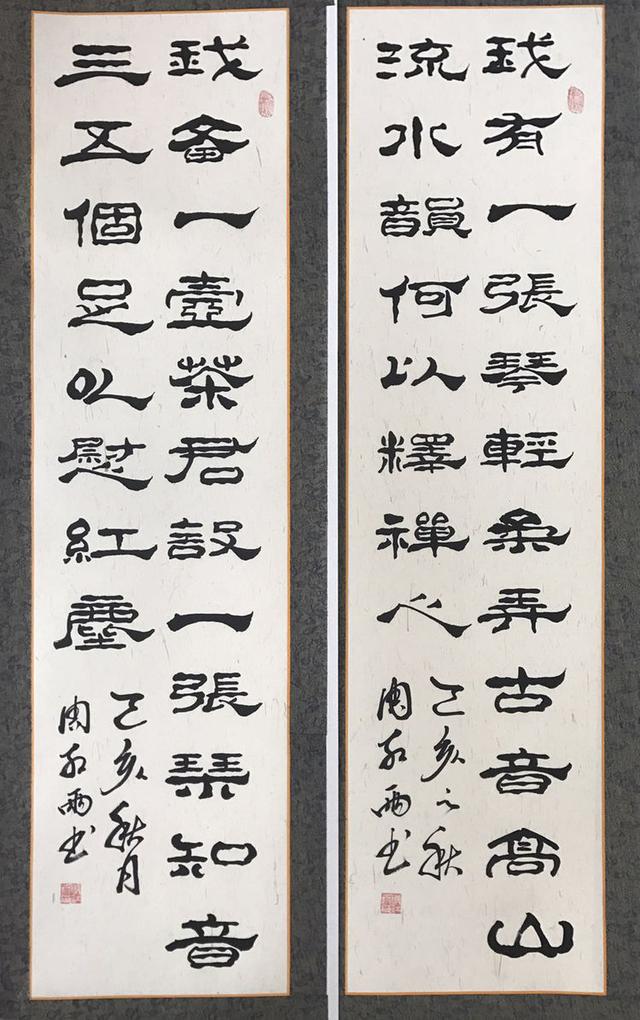 我有一張琴輕柔弄古音高山
流水韻何以釋禪心
己亥之秋
周雨书
我备一壺茶君設一張琹知音
三五個足以慰紅塵
己亥秋月
周雨书